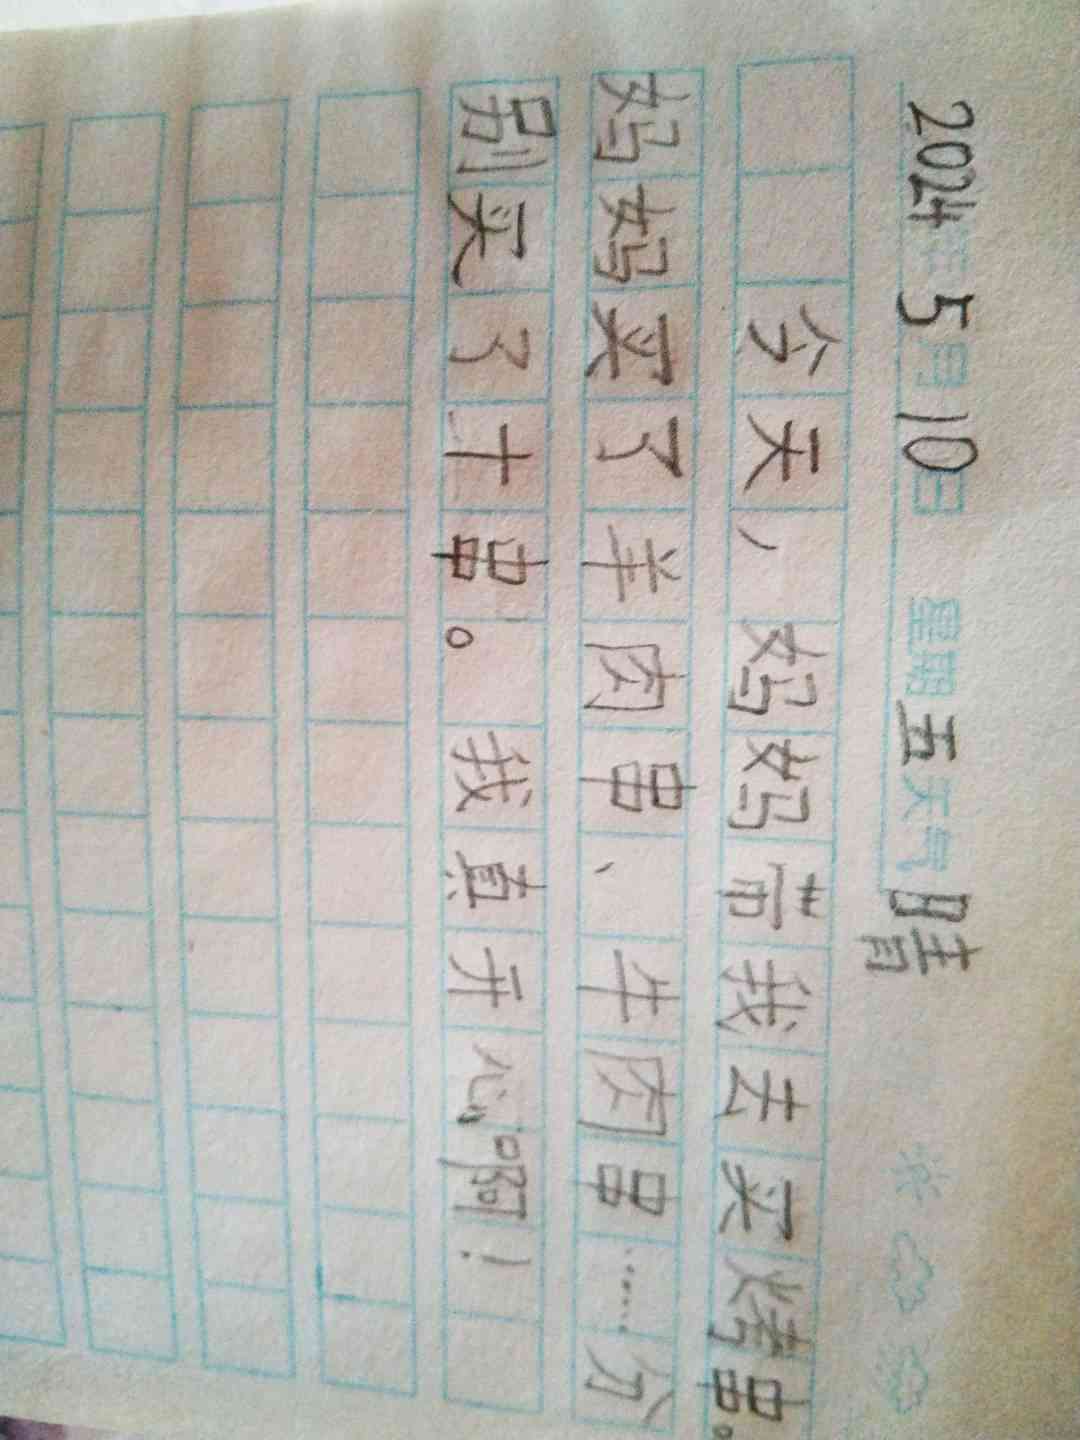 2024年5月10日 星期五天气晴
今天，妈妈带我去买烤串。
妈妈买了羊肉串、牛肉串……分
别买了十串。我真开心啊！